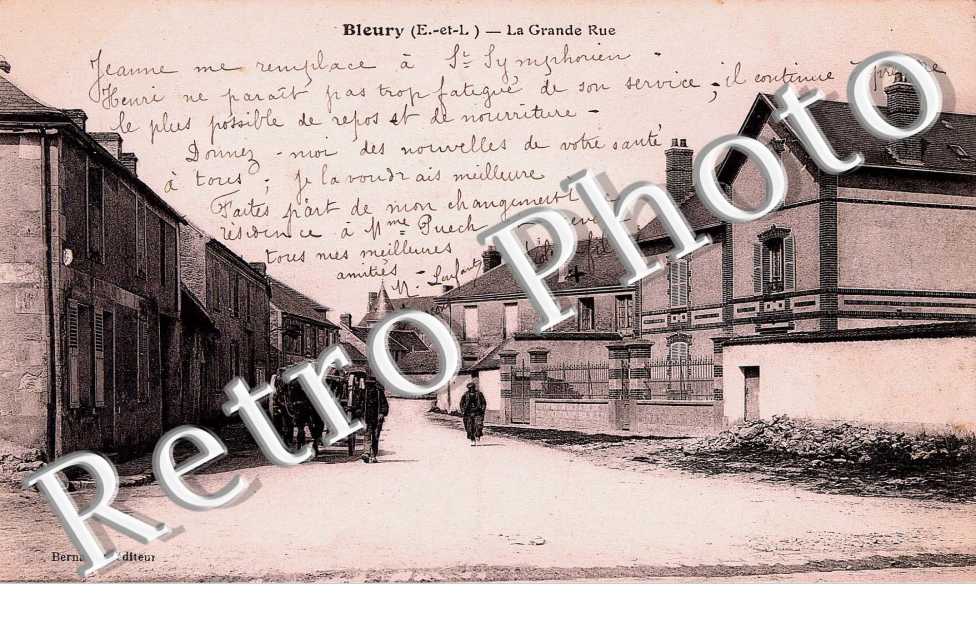 Bleury (E.-et-L) — La Grande Rue
Jeanne me remplace à St Symphorien -
Henri ne paraît pas trop fatigué de son service ; il continue à prendre
le plus possible de repos et de nourriture -
Donnez-moi des nouvelles de votre santé
à tous ; je la voudrais meilleure
Faites part de mon changement de
résidence à Mme Puech
tous mes meilleures
amitiés -
Retro Photo
éditeur